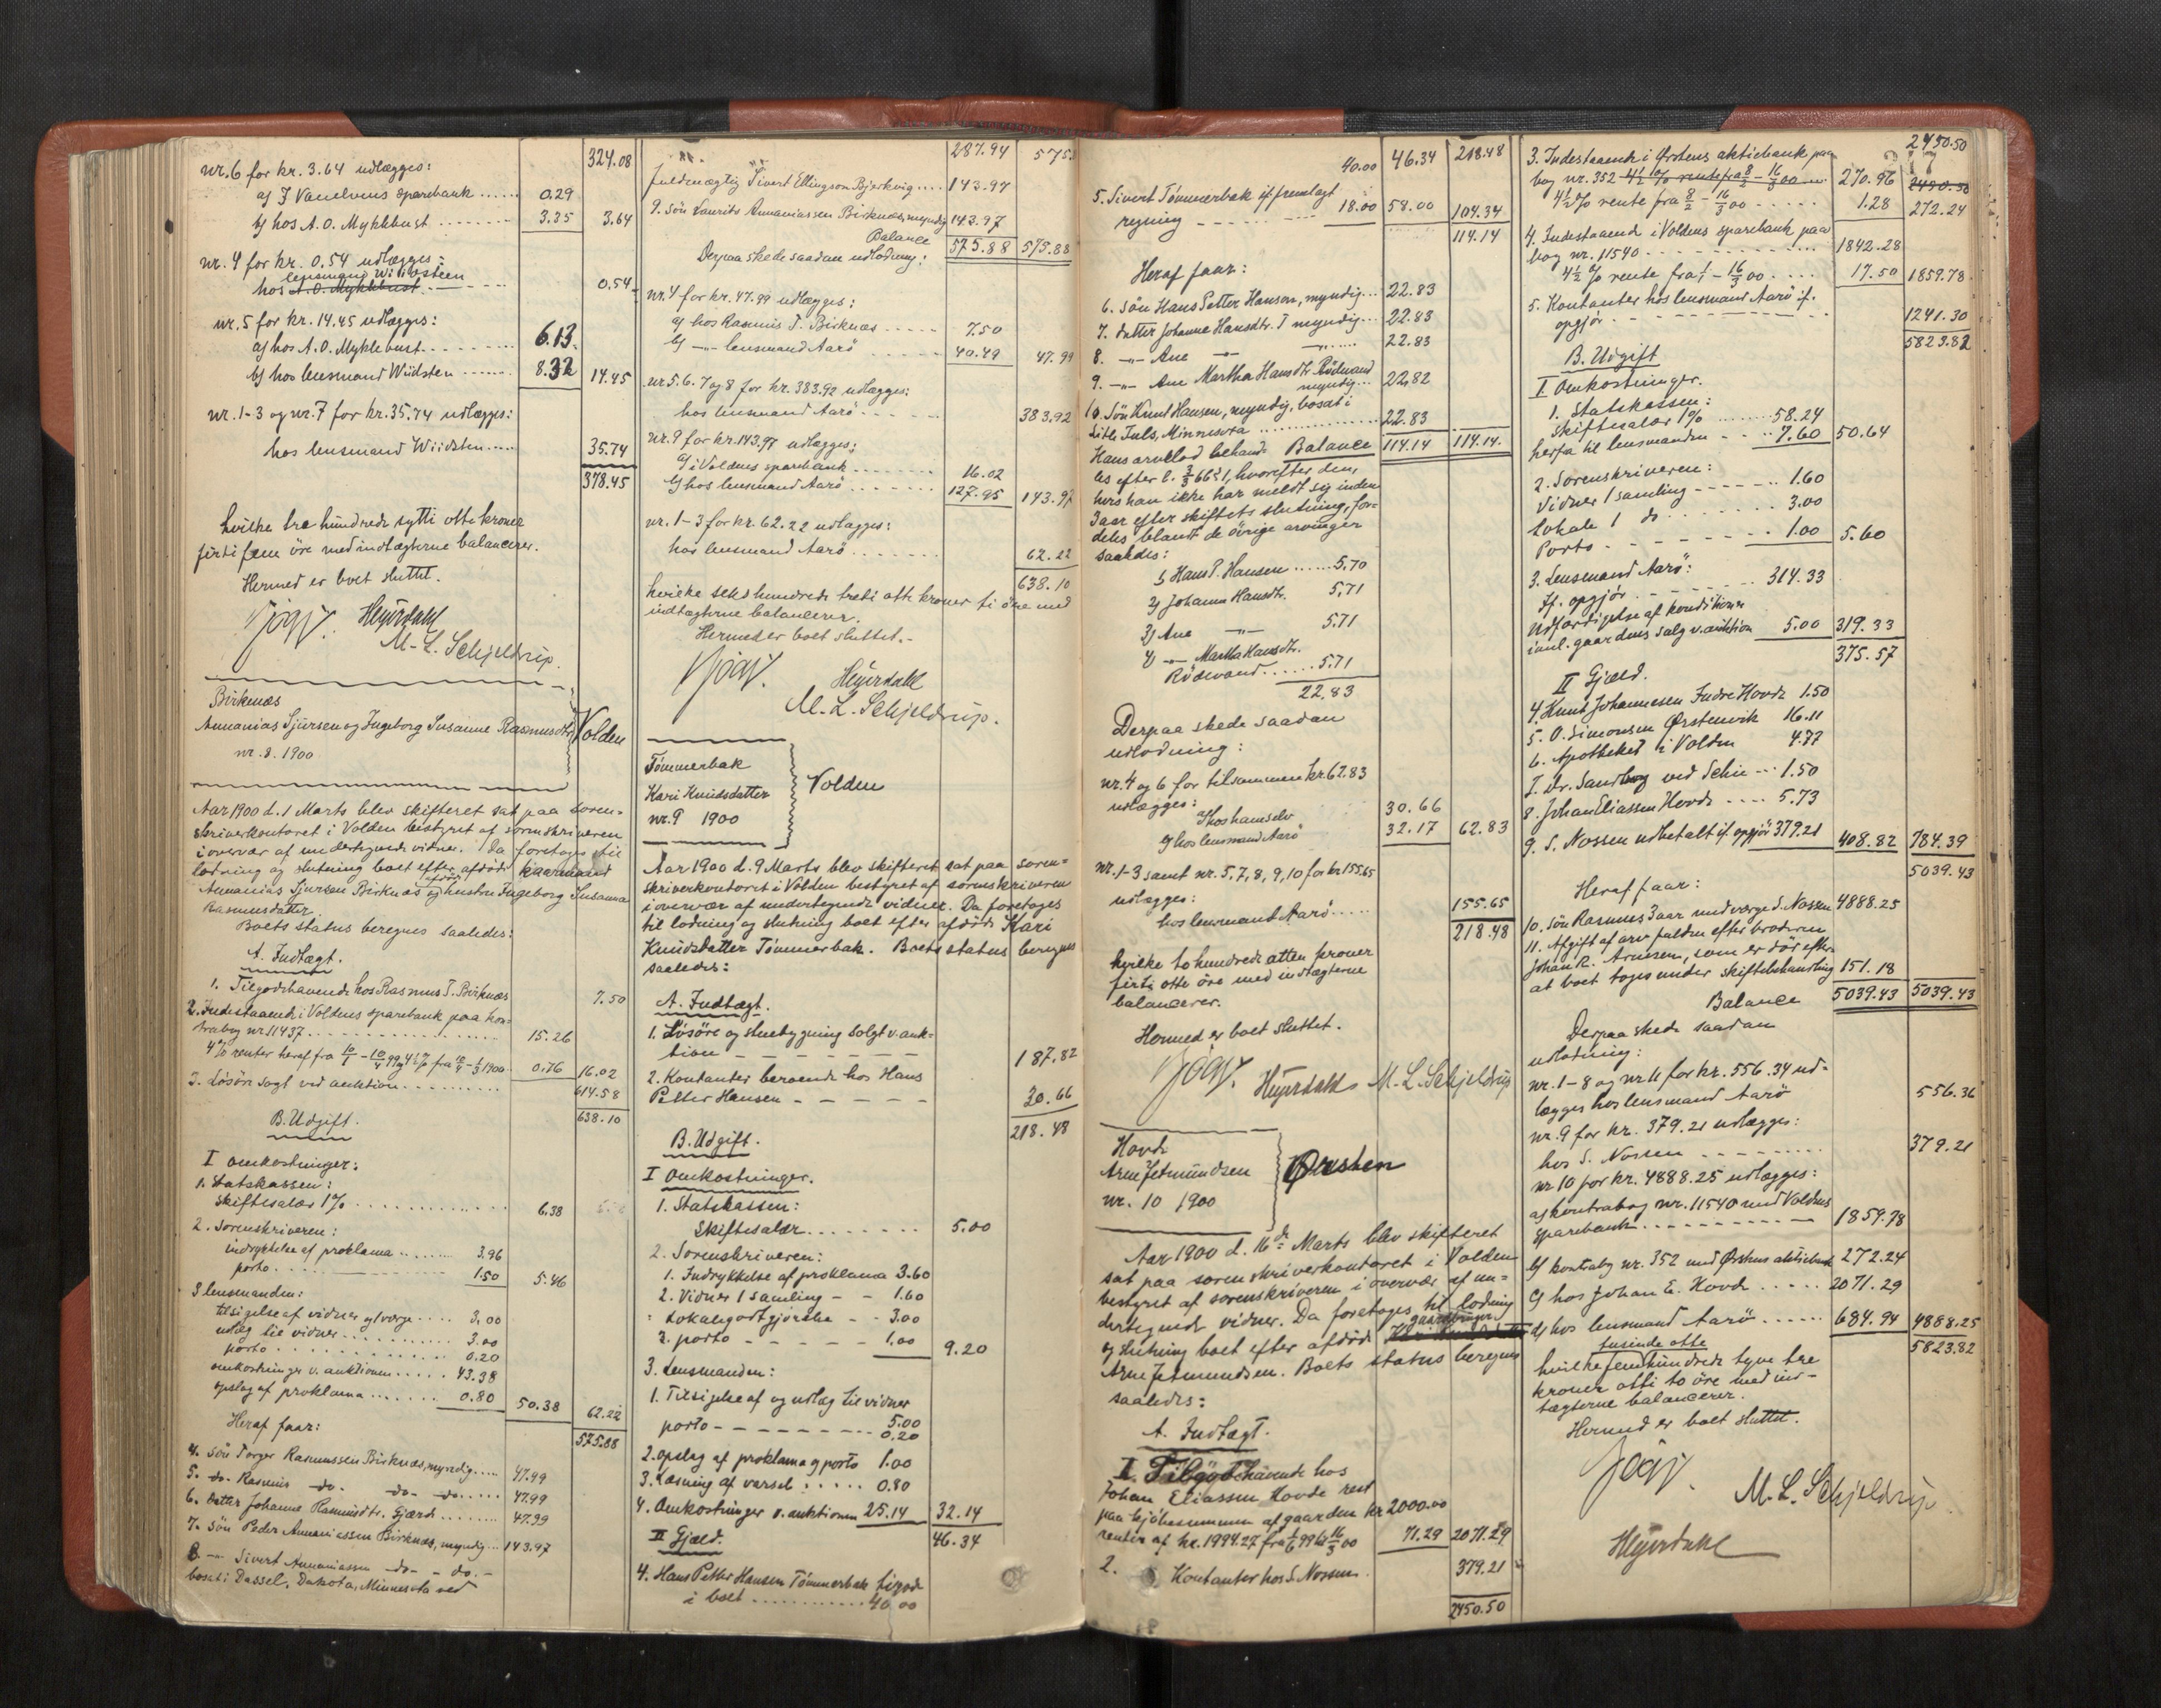 324.08
nr. 6 for kr. 3.64 udlægges:
a) I Vanelvens sparebank ...... 0.29
b) hos A. O. Myklebust ........ 3.35 3.64
nr. 4 for kr. 0.54 udlægges:
lensmand Wiidsteen
hos A. O. Myklebust ........ 0.54
nr. 5 for kr. 14.45 udlægges:
a) hos A. O. Myklebust ........ 6.13
b) hos lensmand Wiidsten ....... 8.32 14.45
nr. 1-3 og nr. 7 for kr. 35.74 udlægges:
hos lensmand Wiidsten ..... 35.74
378.45
hvilke tre hundrede sytti otte kroner
firti fem öre med indtægterne balancerer.
Hermed er boet sluttet.
Heyerdahl
M. L. Schjeldrup.
Birknæs
Annanias Sjursen og Ingeborg Susanne Rasmusdtr Volden
nr. 8. 1900
Aar 1900 d. 1 Marts blev skifteret sat paa soren=
skriverkontoret i Volden bestyret af sorenskriveren
i overvær af undertegnede vidner. Da foretoges til
lodning og slutning boet efter afdöde kaarmand
Annanias Sjursen Birknæs og hustru Ingeborg Susanna
Rasmusdatter.
Boets status beregnes saaledes:
A. Indtægt.
1. Tilgodehavende hos Rasmus T. Birknæs 7.50
2. Indestaaende i Voldens sparebank paa kon-
trabog nr 11437 ........ 15.26
4% renter heraf fra 10/1 - 10/4 99 og 4½% fra 10/4 - 1/3 1900 0.76 16.02
3. Lösöre sogt ved auktion .......... 614.58
638.10
B. Udgift.
I Omkostninger:
1. Statskassen:
skiftesalær 1% .......... 6.38
2. Sorenskriveren:
indrykkelse af proklama ....... 3.96
porto ........ 1.50 5.46
3 lensmanden:
tilsigelse af vidner og værge ..... 3.00
udlæg til vidner ........... 3.00
porto ........... 0.20
omkostninger v. auktionen ..... 43.38
opslag af proklama ....... 0.80 50.38 62.22
Heraf faar: 575.88
4. sön Torger Rasmussen Birknæs, myndig ..... 47.99
5. do Rasmus do. do. do ..... 47.99
6. datter Johanne Rasmusdtr. Gjærde ........ 47.99
7. sön Peder Annaniassen Birknæs, myndig ... 143.97
8. -"- Sivert Annaniassen do - do. -
bosat i Dassel, Dakota, Minnesota ved
287.94 575.88
fuldmægtig Sivert Ellingson Bjerkvig .... 143.97
9. Sön Laurits Annaniassen Birknæs, myndig 143.97
Balance 575.88 575.88
Derpaa skede saadan udlodning:
nr. 4 for kr. 47.99 udlægges:
a) hos Rasmus T. Birknæs ..... 7.50
b) -"- lensmand Aarö ....... 40.49 47.99
nr 5. 6. 7 og 8 for kr. 383.92 udlægges:
hos lensmand Aarö ...... 383.92
nr. 9 for kr. 143.97 udlægges:
a) i Voldens sparebank ........ 16.02
b) hos lensmand Aarö ......... 127.95 143.97
nr. 1-3 for kr. 62.22 udlægges:
hos lensmand Aarö ....... 62.22
638.10
hvilke seks hundrede treti otte kroner ti öre med
indtægterne balancerer.
Hermed er boet sluttet.-
Heyerdahl
M. L. Schjeldrup.
Tömmerbak
Kari Knudsdatter Volden
nr. 9 1900
Aar 1900 d. 9 Marts blev skifteret sat paa soren=
skriverkontoret i Volden bestyret af sorenskriveren
i overvær af undertegnede vidner. Da foretoges
til lodning og slutning boet efter afdöde Kari
Knudsdatter Tömmerbak. Boets status beregnes
saaledes:
A. Indtægt.
1. Lösöre og stuebygning solgt v. auk-
tion - - - - - - - 187.82
2. Kontanter beroende hos Hans
Petter Hansen - - - - - 30.66
218.48
B. Udgift.
I Omkostninger.
1. Statskassen:
Skiftesalær ........ 5.00
2. Sorenskriveren:
1. Indrykkelse af proklama 3.60
2. Vidner 1 samling - - 1.60
Lokalegodtgjörelse - - 3.00
3. porto - - - - - 1.00 9.20
3. Lensmanden:
1. Tilsigelse af og udlæg til vidner 5.00
porto - - - - - - - - 0.20
2. opslag af proklama og porto 1.00
3. Læsning af varsel ...... 0.80
4. Omkostninger v. auktionen 25.14 32.14
II Gjæld. 46.34
4. Hans Petter Hansen Tömmerbak tilgode
i boet ............ 40.00
40.00 46.34 218.48
5. Sivert Tömmerbak if. fremlagt
regning - - - - - - 18.00 58.00 104.34
114.14
Heraf faar:
6. Sön Hans Petter Hansen, myndig ... 22.83
7. datter Johanne Hansdtr. T myndig ... 22.83
8. -"- Ane -"- -"- ..... 22.83
9. -"- Ane Martha Hansdtr Rödevand
myndig ... 22.82
10. Sön Knut Hansen, myndig, bosat i
Litle Fals, Minnesota .......... 22.83
Balance 114.14 114.14.
Hans arvelod behand-
les efter l. 3/3 66 § 1, hvorefter den,
hvis han ikke har meldt sig inden
3 aar efter skiftets slutning, for-
deles blandt de övrige arvinger
saaledes:
1) Hans P. Hansen ...... 5.70
2) Johanne Hansdtr. 5.71
3) Ane -"- 5.71
4) -"- Martha Hansdtr.
Rödevand ...... 5.71
22.83
Derpaa skede saadan
udlodning:
nr. 4 og 6 for tilsammen kr. 62.83
udlægges:
a) hos ham selv 30.66
b) hos lensmand Aarö 32.17 62.83
nr. 1-3 samt nr. 5, 7, 8, 9, 10 for kr 155.65
udlægges:
hos lensmand Aarö ..... 155.65
218.48
hvilke to hundrede atten kroner
firti otte öre med indtægterne
balancerer.
Hermed er boet sluttet.
Heyerdahl M. L. Schjeldrup
Hovde
Arne Jetmundsen Ørsten
nr. 10 1900
Aar 1900 d. 16de Marts blev skifteret
sat paa sorenskriverkontoret i Volden
bestyret af sorenskriveren i overvær af un=
dertegnede vidner. Da foretoges til lodning
og slutning boet efter afdöde gaardbruger
Arne Jetmundsen. Boets status beregnes
saaledes:
A. Indtægt.
1. Tilgodehavende hos
Johan Eliassen Hovde rest
paa kjöbesummen af gaarden kr 2000.00
renter af kr. 1994.27 fra 1/6 99 til 16/3 00 71.29 2071.29
2. Kontanter hos S. Nossen 379.21
2450.50
2450.50
3. Indestaaende i Ørstens aktiebank paa
bog nr. 352 4½% rente fra 8/2 - 16/3 00 270.96 2490.50
4½% rente fra 8/2 - 16/3 00 ..... 1.28 272.24
4. Indestaaende i Voldens sparebank paa
bog nr. 11540 ........... 1842.28
4½% rente fra 1/1 - 16/3 00 .... 17.50 1859.78
5. Kontanter hos lensmand Aarö if.
opgjör ........ 1241.30
5823.82
B. Udgift
I Omkostninger.
1. Statskassen:
Skiftesalær 1% ........ 58.24
herfra til lensmanden - ... 7.60 50.64
2. Sorenskriveren:
Vidner 1 samling - - - - - 1.60
Lokale 1 do ....... 3.00
Porto - - - - - - 1.00 5.60
3. Lensmand Aarö:
If. opgjör - - - - - 314.33
Udfærdigelse af konditioner
i anl. gaardens salg v. auktion 5.00 319.33
375.57
II Gjæld.
4. Knut Johannesen Indre Hovde 1.50
5. O. Simonsen Ørstenvik 16.11
6. Apotheket i Volden 4.77
7. Dr. Sandberg ved Schie ... 1.50
8. Johan Eliassen Hovde .... 5.73
9. S. Nossen udbetalt if. opgjör 379.21 408.82 784.39
5039.43
Heraf faar:
10. Sön Rasmus 3 aar med værge S. Nossen 4888.25
11. Afgift af arv falden efter broderen
Johan R. Arnesen, som er död efter
at boet toges under skiftebehandling 151.18
Balance 5039.43 5039.43
Derpaa skede saadan
udlodning:
nr. 1-8 og nr 11 for kr. 556.34 ud-
lægges hos lensmand Aarö 556.36
nr. 9 for kr. 379.21 udlægges:
hos S. Nossen ........ 379.21
nr 10 for kr. 4888.25 udlægges:
a) kontrabog nr. 11540 med Voldens
sparebank .......... 1859.78
b) kontrabog nr. 352 med Ørstens aktiebank 272.24
c) hos Johan E. Hovde ..... 2071.29
d) hos lensmand Aarö ...... 684.94 4888.25
5823.82
tusinde otte
hvilke fem hundrede tyve tre
kroner otti to öre med ind-
tægterne balancerer.
Hermed er boet sluttet.
M. L. Schjeldrup
Heyerdahl